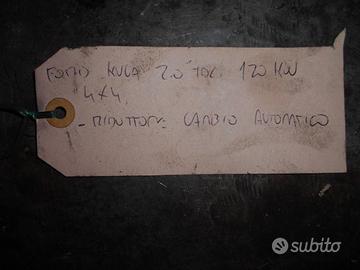 FORD KUGA 2.0 TDC 120 KW
4x4
- RIDUTTORE CAMBIO AUTOMATICO
subito